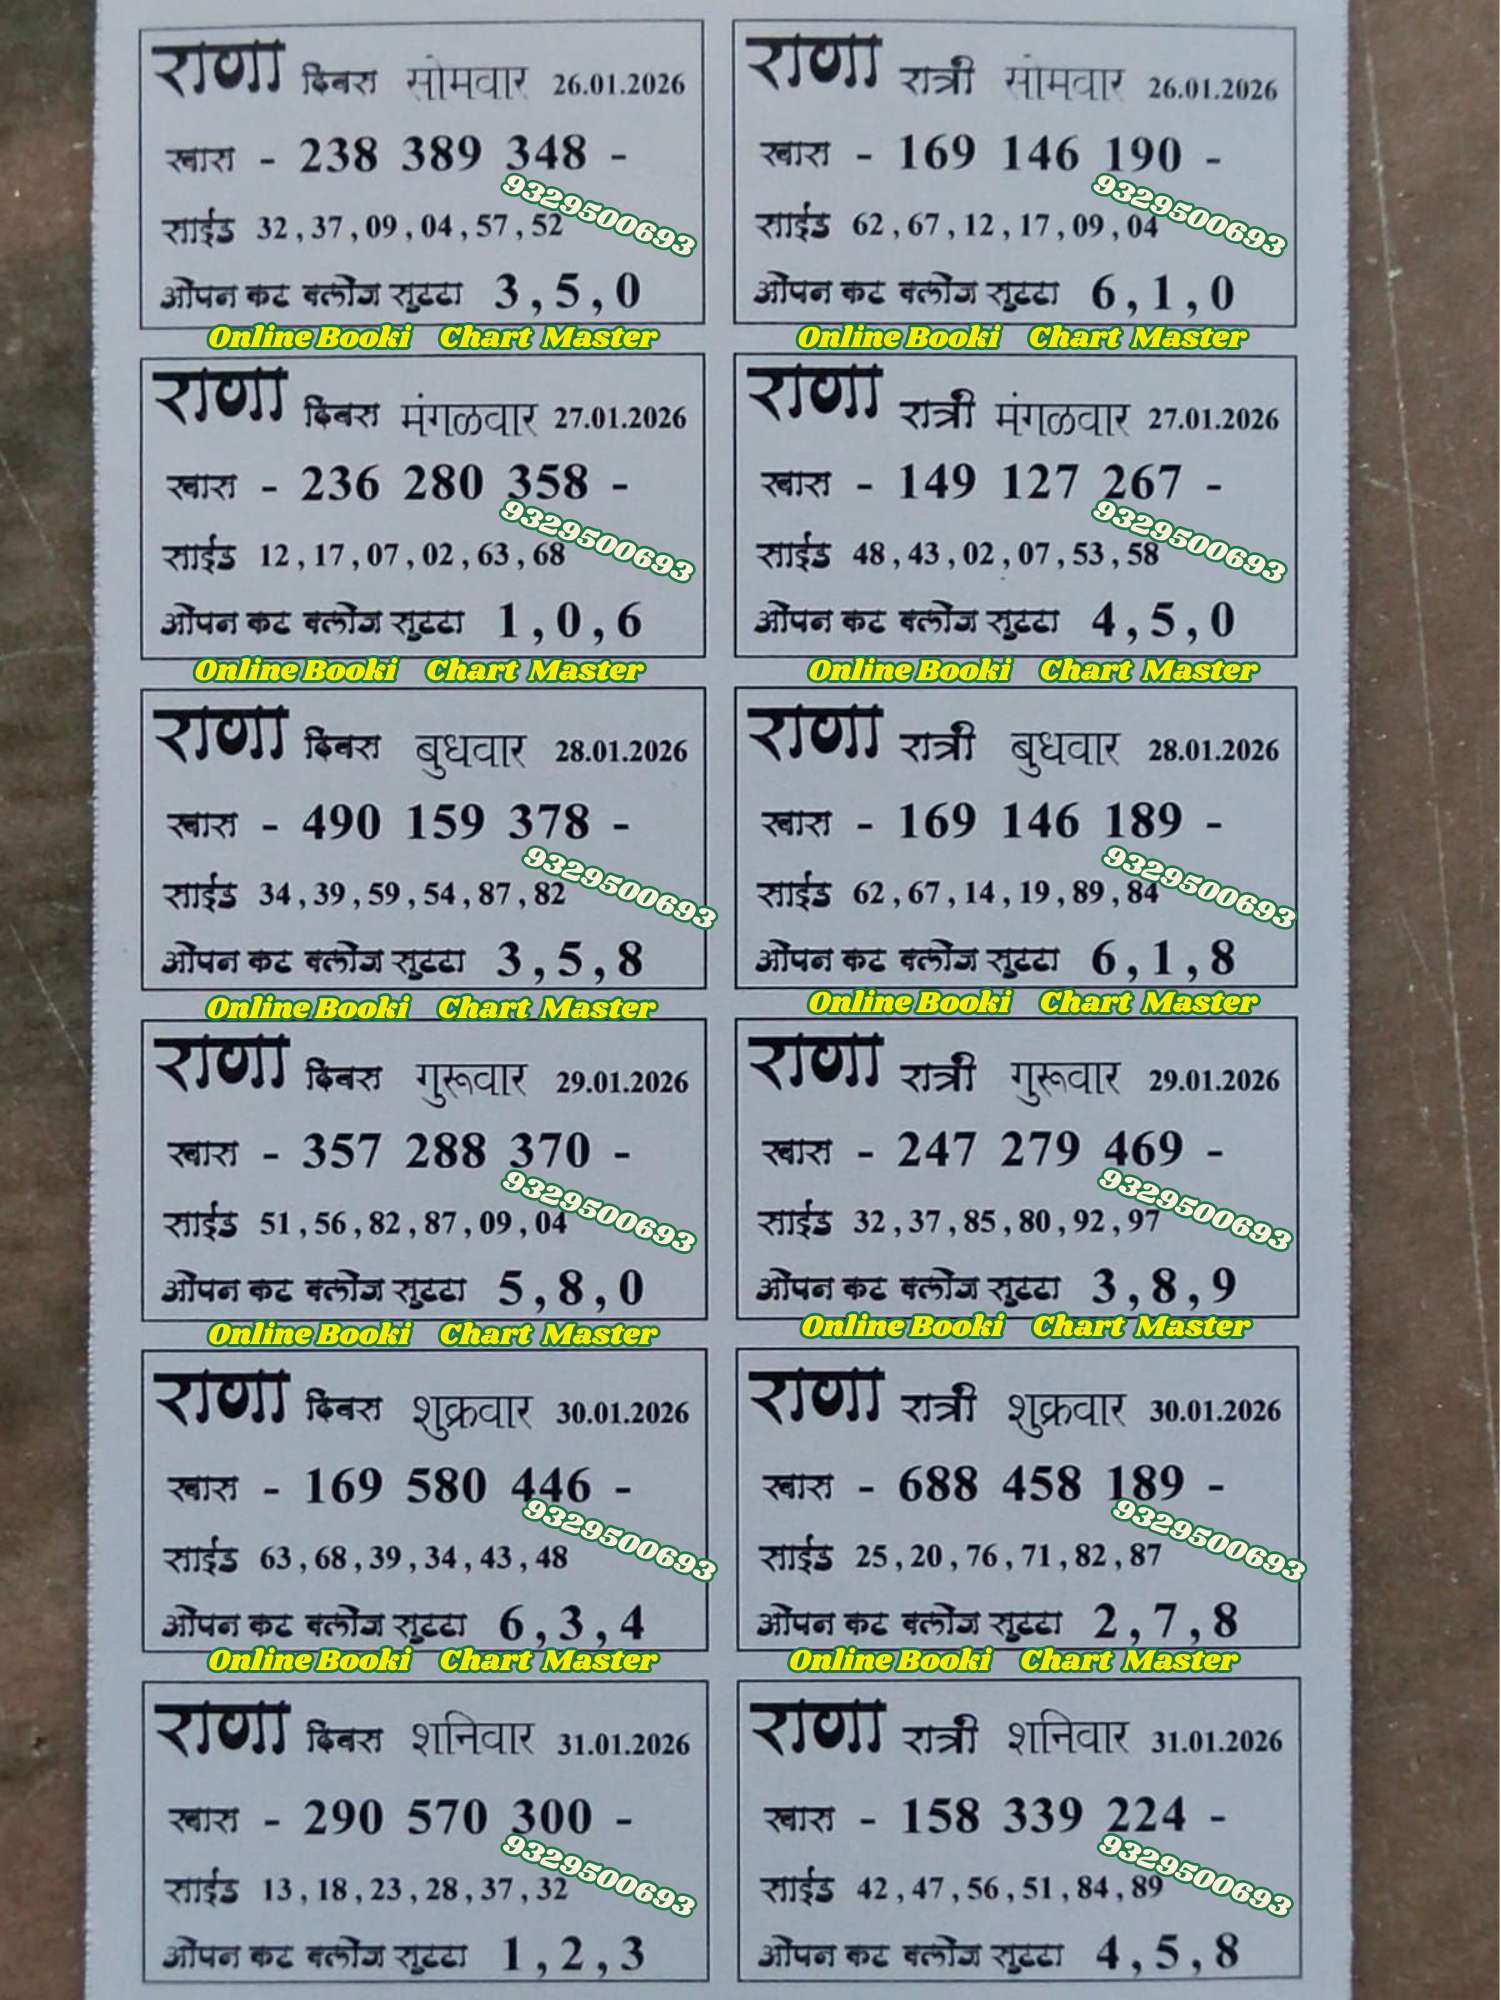 राणा दिवस सोमवार 26.01.2026
खास - 238 389 348 -
9329500693
साईड 32 , 37 , 09 , 04 , 57 , 52
ओपन कट क्लोज सुटटा 3 , 5 , 0
Online Booki Chart Master
राणा रात्री सोमवार 26.01.2026
खास - 169 146 190 -
9329500693
साईड 62 , 67 , 12 , 17 , 09 , 04
ओपन कट क्लोज सुटटा 6 , 1 , 0
Online Booki Chart Master
राणा दिवस मंगळवार 27.01.2026
खास - 236 280 358 -
9329500693
साईड 12 , 17 , 07 , 02 , 63 , 68
ओपन कट क्लोज सुटटा 1 , 0 , 6
Online Booki Chart Master
राणा रात्री मंगळवार 27.01.2026
खास - 149 127 267 -
9329500693
साईड 48 , 43 , 02 , 07 , 53 , 58
ओपन कट क्लोज सुटटा 4 , 5 , 0
Online Booki Chart Master
राणा दिवस बुधवार 28.01.2026
खास - 490 159 378 -
9329500693
साईड 34 , 39 , 59 , 54 , 87 , 82
ओपन कट क्लोज सुटटा 3 , 5 , 8
Online Booki Chart Master
राणा रात्री बुधवार 28.01.2026
खास - 169 146 189 -
9329500693
साईड 62 , 67 , 14 , 19 , 89 , 84
ओपन कट क्लोज सुटटा 6 , 1 , 8
Online Booki Chart Master
राणा दिवस गुरूवार 29.01.2026
खास - 357 288 370 -
9329500693
साईड 51 , 56 , 82 , 87 , 09 , 04
ओपन कट क्लोज सुटटा 5 , 8 , 0
Online Booki Chart Master
राणा रात्री गुरूवार 29.01.2026
खास - 247 279 469 -
9329500693
साईड 32 , 37 , 85 , 80 , 92 , 97
ओपन कट क्लोज सुटटा 3 , 8 , 9
Online Booki Chart Master
राणा दिवस शुक्रवार 30.01.2026
खास - 169 580 446 -
9329500693
साईड 63 , 68 , 39 , 34 , 43 , 48
ओपन कट क्लोज सुटटा 6 , 3 , 4
Online Booki Chart Master
राणा रात्री शुक्रवार 30.01.2026
खास - 688 458 189 -
9329500693
साईड 25 , 20 , 76 , 71 , 82 , 87
ओपन कट क्लोज सुटटा 2 , 7 , 8
Online Booki Chart Master
राणा दिवस शनिवार 31.01.2026
खास - 290 570 300 -
9329500693
साईड 13 , 18 , 23 , 28 , 37 , 32
ओपन कट क्लोज सुटटा 1 , 2 , 3
राणा रात्री शनिवार 31.01.2026
खास - 158 339 224 -
9329500693
साईड 42 , 47 , 56 , 51 , 84 , 89
ओपन कट क्लोज सुटटा 4 , 5 , 8